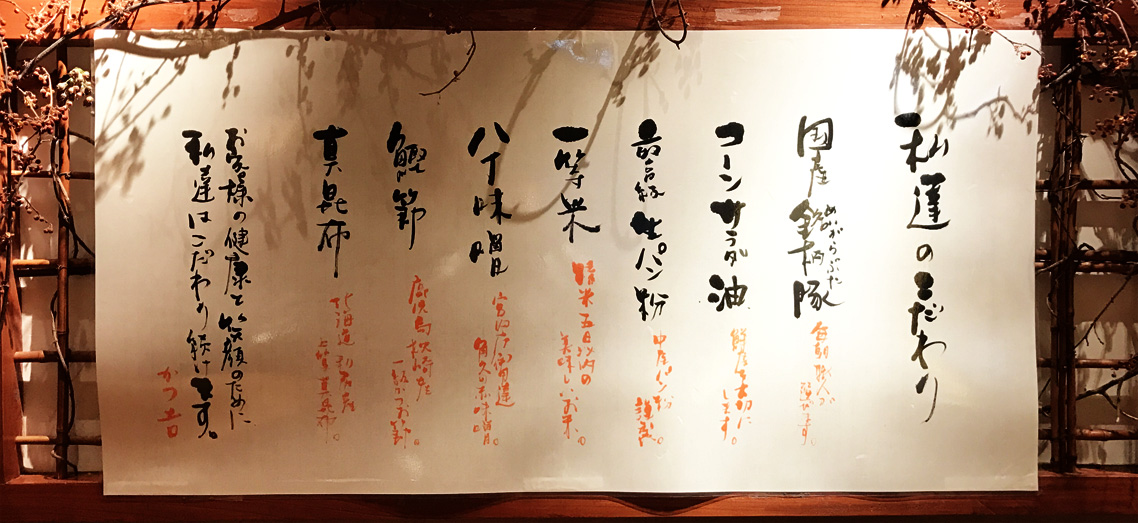 私達のこだわり
国産銘柄豚
めいがらぶた
毎朝職人が
選びます。
コーンサラダ油
鮮度を大切に
します。
最高級生パン粉
中屋パン粉
謹製
一等米
精米五日以内の
美味しいお米。
八丁味噌
宮内庁御用達
角久の赤味噌。
鰹節
鹿児島枕崎産
一級かつお節。
真昆布
北海道
真昆布。
お客様の健康と笑顔のために
私達はこだわり続けます。
かつ吉